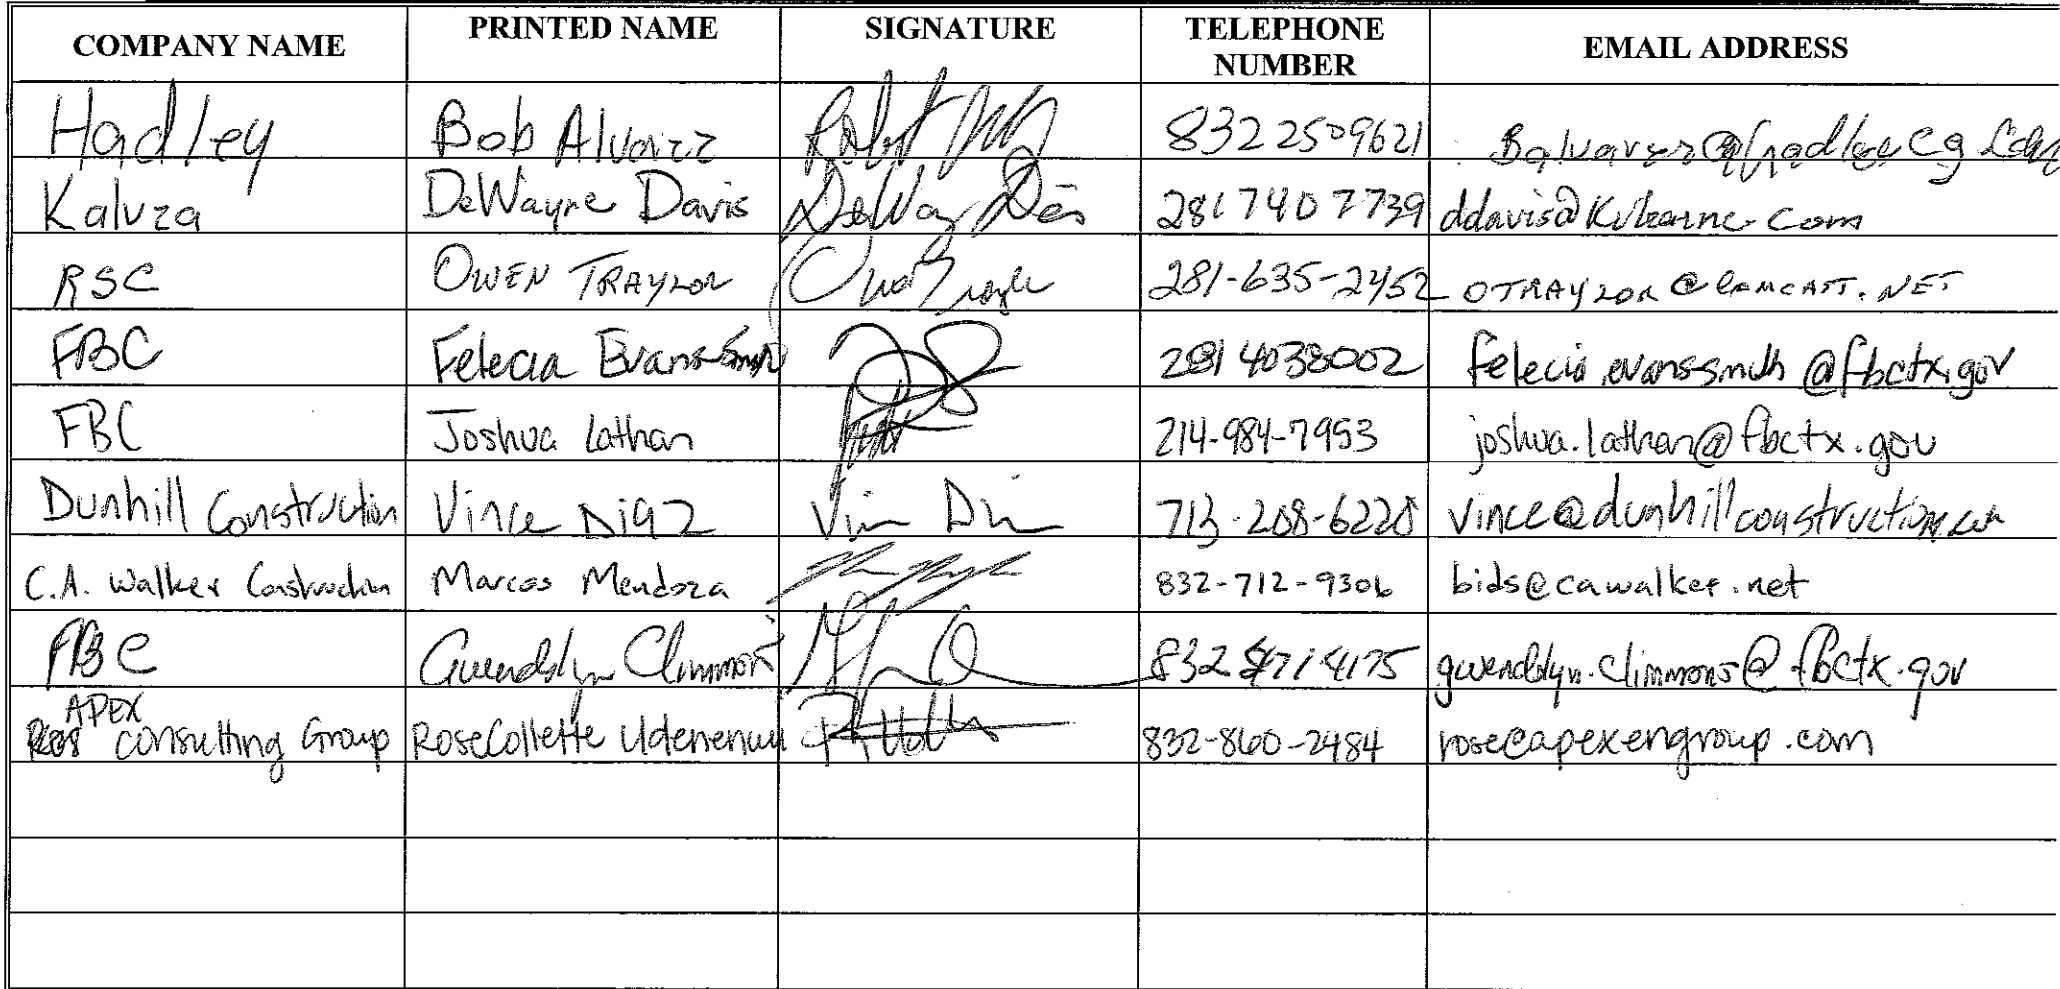 COMPANY NAME PRINTED NAME SIGNATURE TELEPHONE NUMBER EMAIL ADDRESS
Hadley Bob Alvarez 832 2509621
Kaluza DeWayne Davis 281 740 7739
RSC OWEN TRAYLOR 281-635-2452
FBC Felecia Evans-Smith 281 4038002 felecia.evanssmith@fbctx.gov
FBC Joshua Lathan 214-984-7953 joshua.lathan@fbctx.gov
Dunhill Construction Vince Diaz 713-208-6228 vince@dunhillconstruction.com
C.A. Walker Construction Marcos Mendoza 832-712-9306 bids@cawalker.net
FBC Gwendolyn Climmons 832 4714175 gwendolyn.climmons@fbctx.gov
APEX
Consulting Group RoseCollette 832-860-2484 rose@apexengroup.com